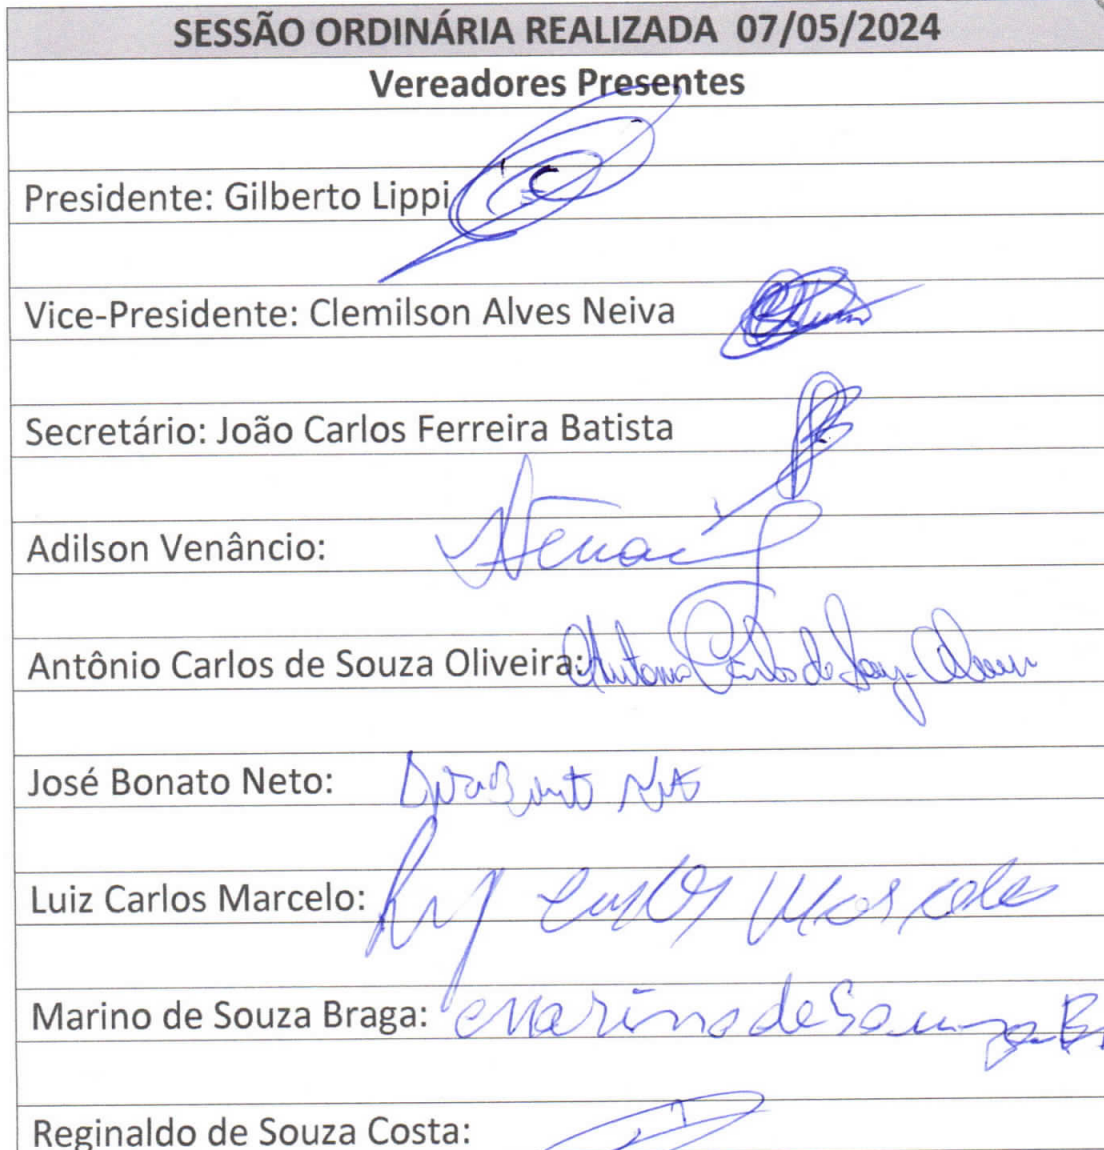 SESSÃO ORDINÁRIA REALIZADA 07/05/2024
Vereadores Presentes
Presidente: Gilberto Lippi
Vice-Presidente: Clemilson Alves Neiva
Secretário: João Carlos Ferreira Batista
Adilson Venâncio:
Antônio Carlos de Souza Oliveira: Antonio Carlos de
José Bonato Neto:
Luiz Carlos Marcelo: Carlos Marcelo
Marino de Souza Braga: Marino de Souza B
Reginaldo de Souza Costa: